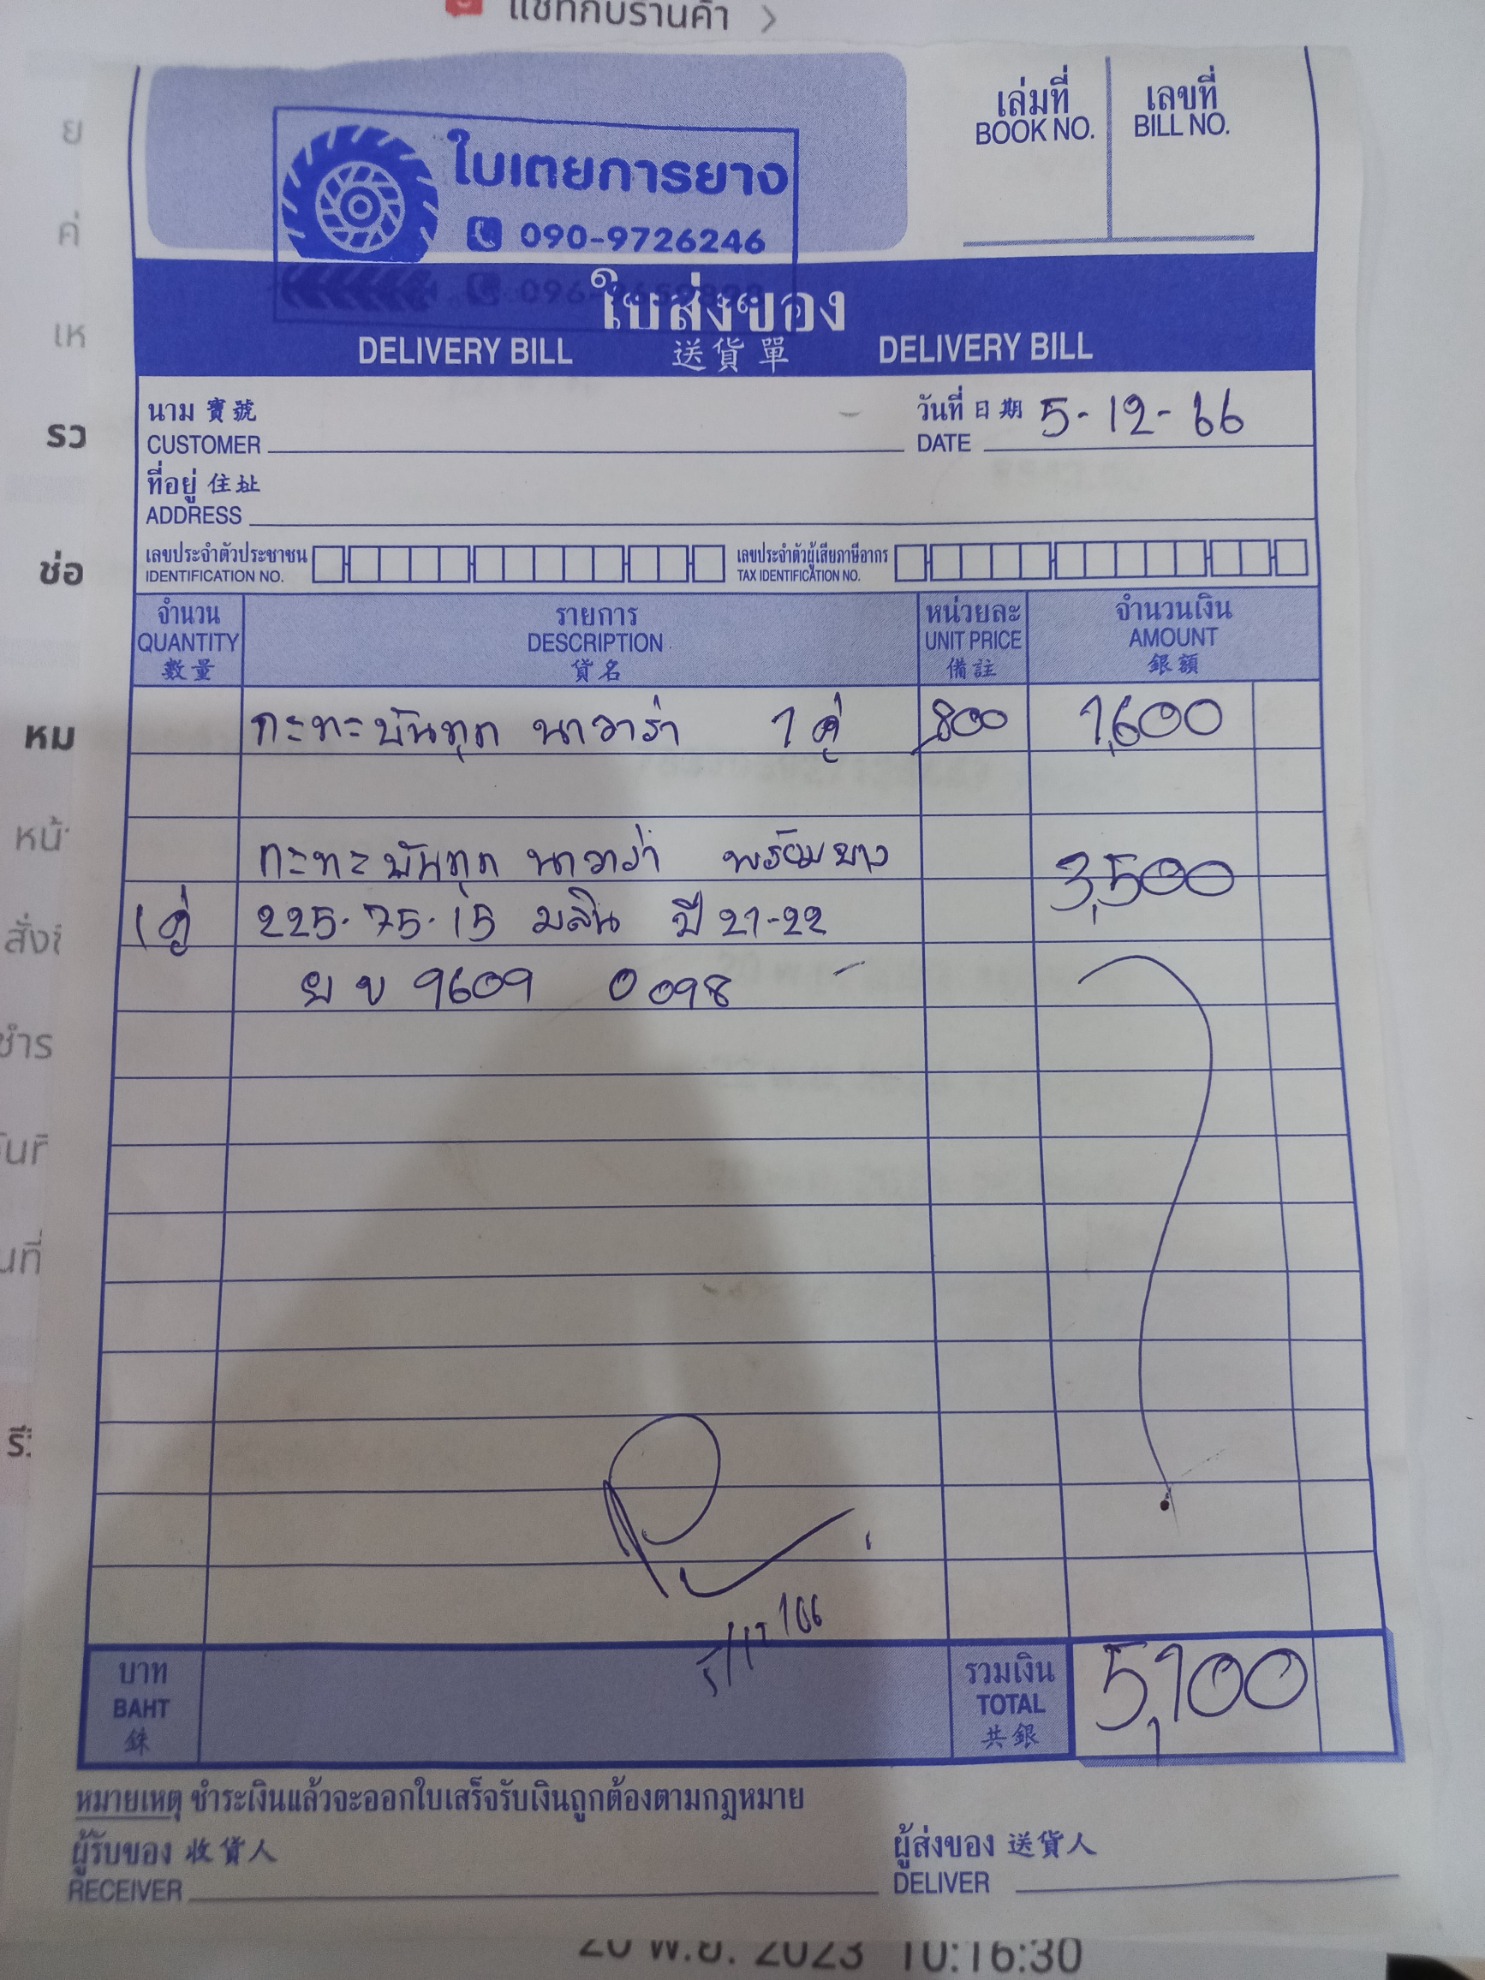 แชทกับร้านค้า >
เล่มที่
BOOK NO.
เลขที่
BILL NO.
ใบเตยการยาง
090-9726246
ใบส่งของ
DELIVERY BILL 送貨單 DELIVERY BILL
นาม 寶號
CUSTOMER
วันที่ 日期 5-12-66
DATE
ที่อยู่ 住址
ADDRESS
เลขประจำตัวประชาชน
IDENTIFICATION NO.
เลขประจำตัวผู้เสียภาษีอากร
TAX IDENTIFICATION NO.
จำนวน
QUANTITY
數量
รายการ
DESCRIPTION
貨名
หน่วยละ
UNIT PRICE
備註
จำนวนเงิน
AMOUNT
銀額
กะทะบันทุก นาวาร่า 1 คู่ 800 1,600
กะทะบันทุก นาวาร่า พร้อมยาง 3,500
1 คู่ 225-75-15 มลิน ปี 21-22
ยข 9609 0098
5/12/66
บาท
BAHT
銖
รวมเงิน
TOTAL
共銀
5,100
หมายเหตุ ชำระเงินแล้วจะออกใบเสร็จรับเงินถูกต้องตามกฎหมาย
ผู้รับของ 收貨人
RECEIVER
ผู้ส่งของ 送貨人
DELIVER
20 พ.ย. 2023 10:16:30